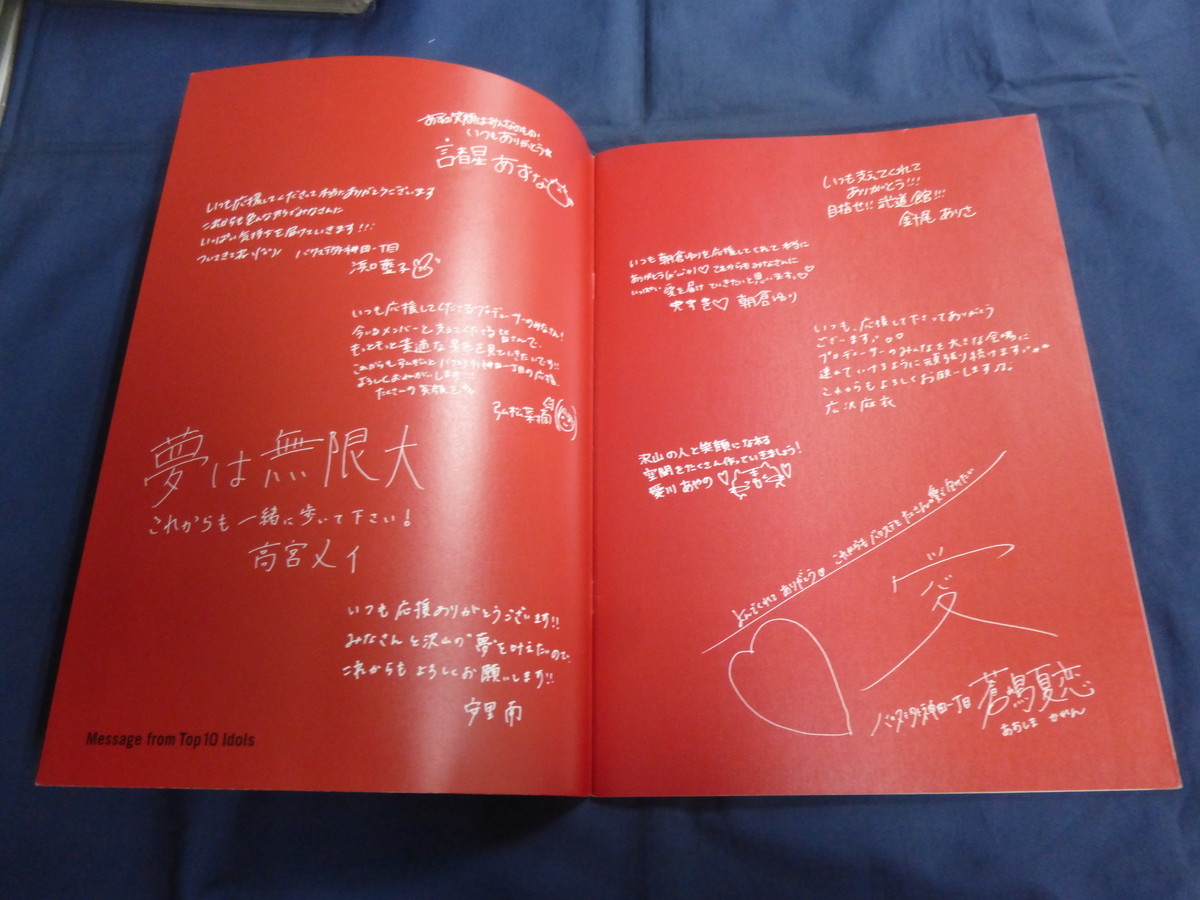 いつもありがとう
諸星 あすな
いつも応援してくださって本当にありがとうございます
これからも色んな形でみなさんに
いっぱい気持ちを届けていきます!!!
パクスプエラ神田一丁目
浜口藍子
いつも応援してくださるプロデューサーのみなさん!
今いるメンバーと支えてくださる皆さんで、
もっともっと素適な景色を見ていきたいです!!
よろしくお願いします
たくさんの笑顔を
弘松菜摘
夢は無限大
これからも一緒に歩いて下さい!
高宮メイ
いつも応援ありがとうございます!!
みなさんと沢山の"夢"を叶えたいので、
これからもよろしくお願いします!!
宇里南
Message from Top10 Idols
いつも支えてくれて
ありがとう!!!
目指せ!!武道館!!!
金尾 ありさ
いつも朝倉ゆりを応援してくれて本当に
ありがとう♡これからもみなさんに
いっぱい愛を届けていきたいと思います。♡♡
大すき♡ 朝倉ゆり
いつも、応援して下さってありがとう
ございます。
プロデューサーのみんなを大きな会場に
連れていけるように頑張り続けます。
これからもよろしくお願いします。
広沢麻衣
沢山の人と笑顔になれる
空間をたくさん作っていきましょう!
愛川 あやの
ありがとう
愛
蒼嶋夏恋
あおしま かれん